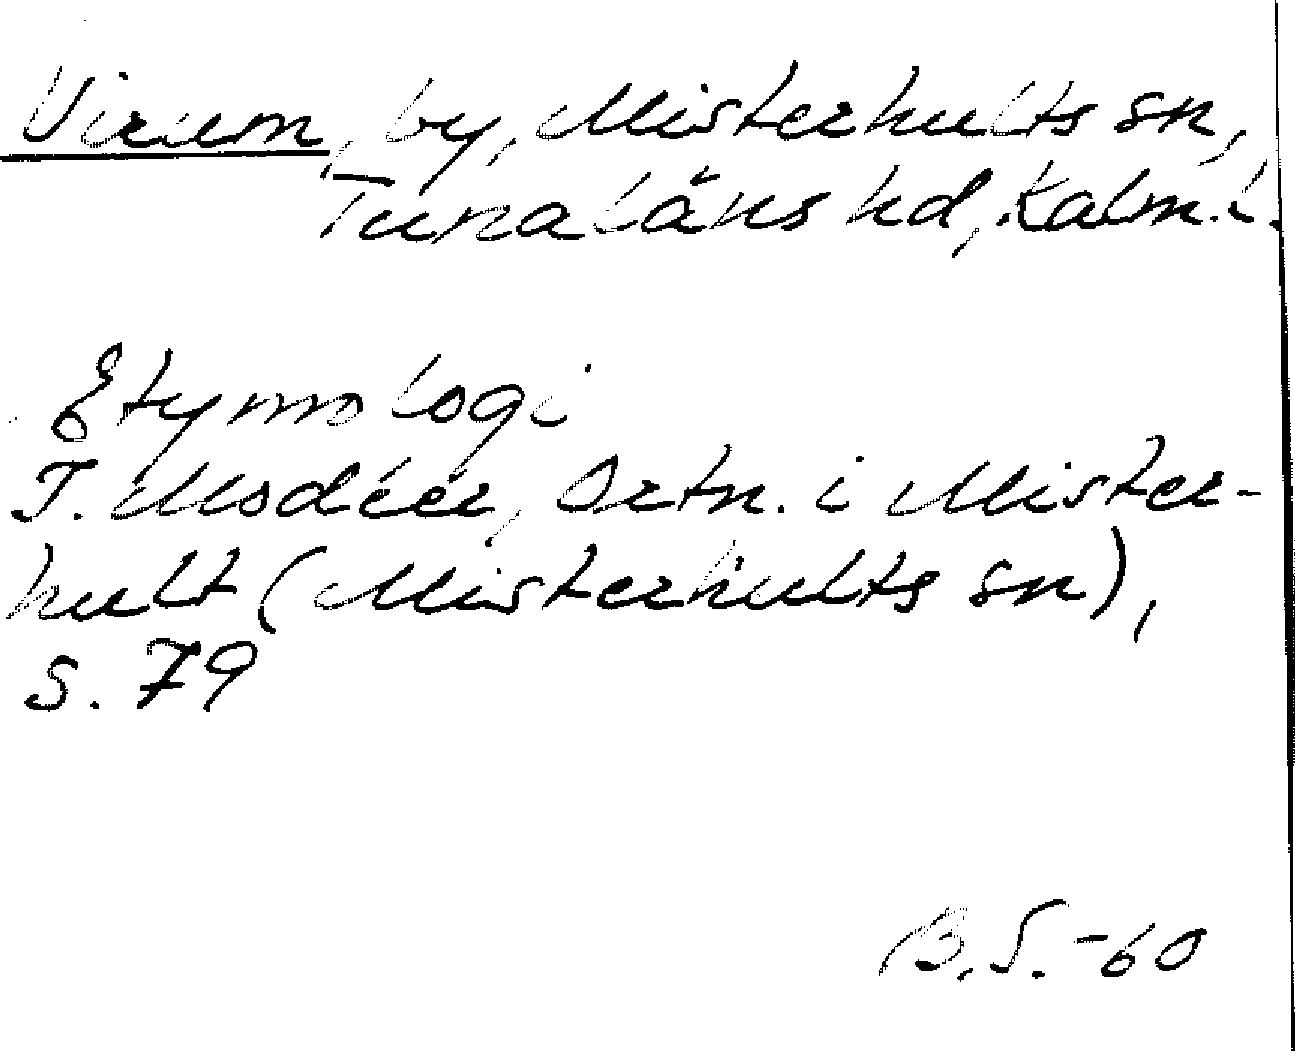 Virum, by, Misterhults sn,
Tunaläns hd, Kalm. l.
Etymologi
I. Modéer, Ortn. i Mister-
hult (Misterhults sn),
s. 79
B.S. -60